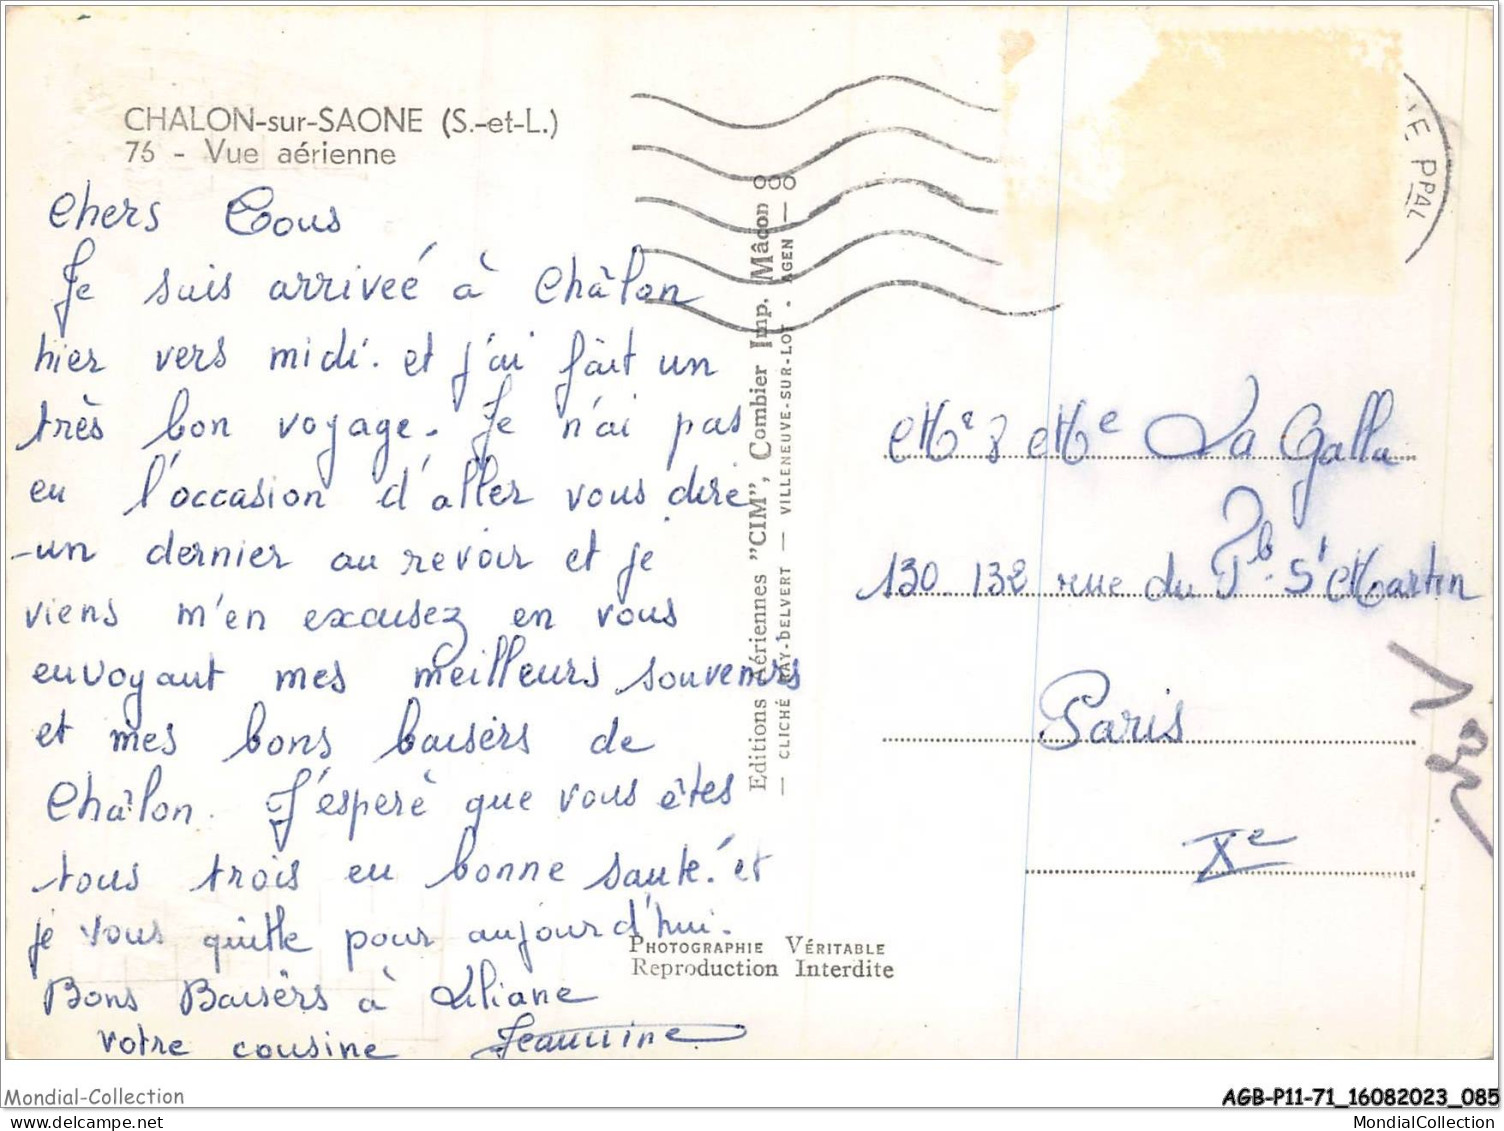 CHALON-sur-SAONE (S.-et-L.)
76 - Vue aérienne
Chers Tous
Je suis arriveé à Châlon
hier vers midi. et j'ai fait un
très bon voyage. Je n'ai pas
eu l'occasion d'aller vous dire
un dernier au revoir et je
viens m'en excusez en vous
envoyant mes meilleurs souvenirs
et mes bons baisers de
Châlon. J'esperè que vous êtes
tous trois en bonne santé. et
je vous quitte pour aujourd'hui.
Bons Baisers à Liliane
votre cousine Jeannine
Editions Aériennes "CIM", Combier Imp. Mâcon
— CLICHÉ RAY-DELVERT — VILLENEUVE-SUR-LOT . AGEN —
PHOTOGRAPHIE VÉRITABLE
Reproduction Interdite
PPAL
Mr & Me La Galla
130-132 rue du Fb. St Martin
Paris
Xe
Mondial-Collection
16/08/2023
AGB-P11-71_16082023_085
MondialCollection